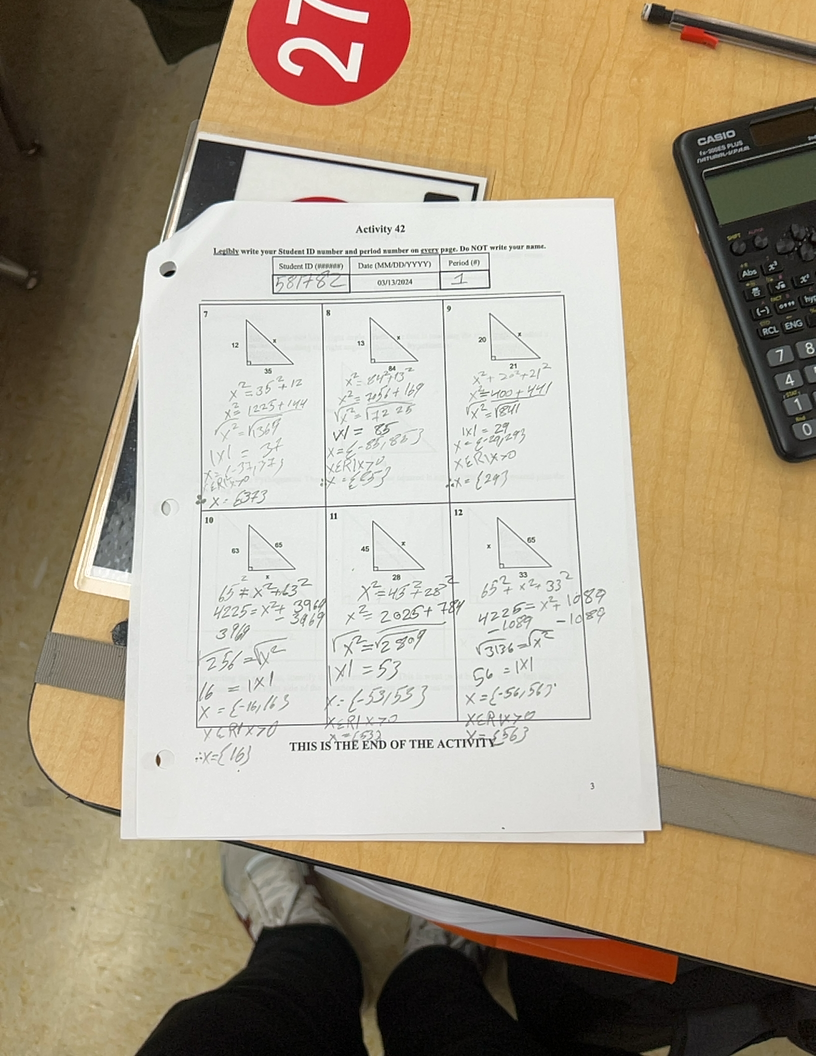 27
CASIO
fx-300ES PLUS
NATURAL-V.P.A.M.
SHIFT ALPHA
Abs x³
(-)
RCL ENG
7 8
4
1
0
Activity 42
Legibly write your Student ID number and period number on every page. Do NOT write your name.
Student ID (######) Date (MM/DD/YYYY) Period (#)
581782 03/13/2024 1
7
12
x
35
x²=35²+12
x²=1225+144
√x²=√1369
|x|=37
x={-37,37}
x∈R|x>0
∴x={37}
8
13
x
84
x²=84²+13²
x²=7056+169
√x²=√7225
|x|=85
x={-85,85}
x∈R|x>0
∴x={85}
9
20
x
21
x²=20²+21²
x²=400+441
√x²=√841
|x|=29
x={-29,29}
x∈R|x>0
∴x={29}
10
63
65
x
65²=x²+63²
4225=x²+3969
3969 -3969
√256=√x²
16=|x|
x={-16,16}
x∈R|x>0
∴x={16}
11
45
x
28
x²=45²+28²
x²=2025+784
√x²=√2809
|x|=53
x={-53,53}
x∈R|x>0
x={53}
12
x
65
33
65²=x²+33²
4225=x²+1089
-1089 -1089
√3136=√x²
56=|x|
x={-56,56}
x∈R|x>0
x={56}
THIS IS THE END OF THE ACTIVITY
3